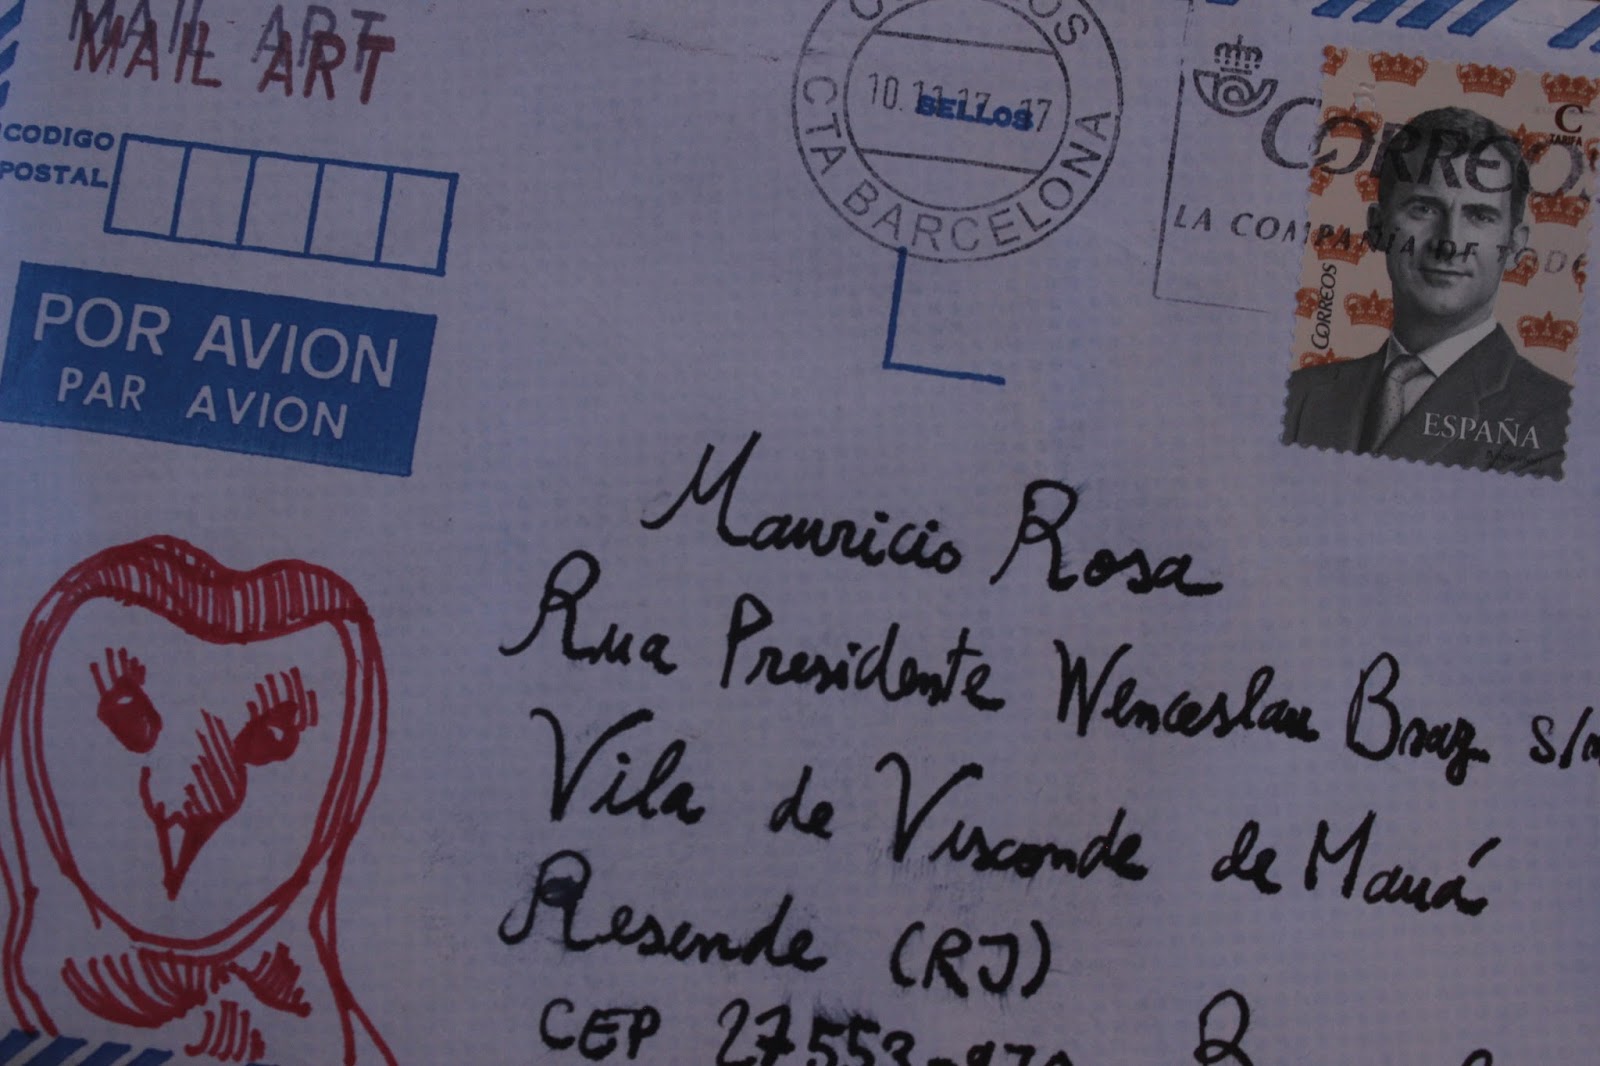 MAIL ART
MAIL ART
CODIGO
POSTAL
POR AVION
PAR AVION
10.11.17-17
SELLOS
CTA BARCELONA
CORREOS
LA COMPAÑIA DE TODOS
C
TARIFA
CORREOS
ESPAÑA
Mauricio Rosa
Rua Presidente Wenceslau Braz s/n
Vila de Visconde de Mauá
Resende (RJ)
CEP 27553-970